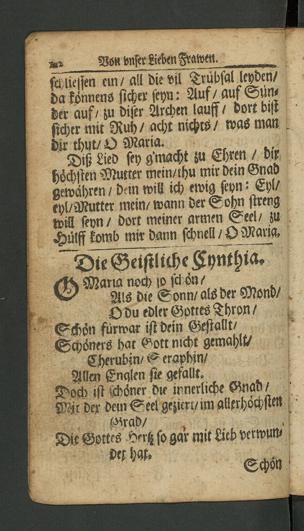 Von vnser Lieben Frawen.
schliessen ein/ all die vil Trübsal leyden/
da könnens sicher seyn: Auf/ auf Sün-
der auf/ zu diser Archen lauff/ dort bist
sicher mit Ruh/ acht nichts/ was man
dir thut/ O Maria.
Diß Lied sey g'macht zu Ehren/ dir
höchsten Mutter mein/ thu mir dein Gnad
gewähren/ dein will ich ewig seyn: Eyl/
eyl/ Mutter mein/ wann der Sohn streng
will seyn/ dort meiner armen Seel/ zu
Hülff komb mir dann schnell/ O Maria.
Die Geistliche Cynthia.
O Maria noch so schön/
Als die Sonn/ als der Mond/
O du edler Gottes Thron/
Schön fürwar ist dein Gestallt/
Schöners hat Gott nicht gemahlt/
Cherubin/ Seraphin/
Allen Englen sie gefallt.
Doch ist schöner die innerliche Gnad/
Mit der dein Seel geziert/ im allerhöchsten
Grad/
Die Gottes Hertz so gar mit Lieb verwun-
det hat.
Schön